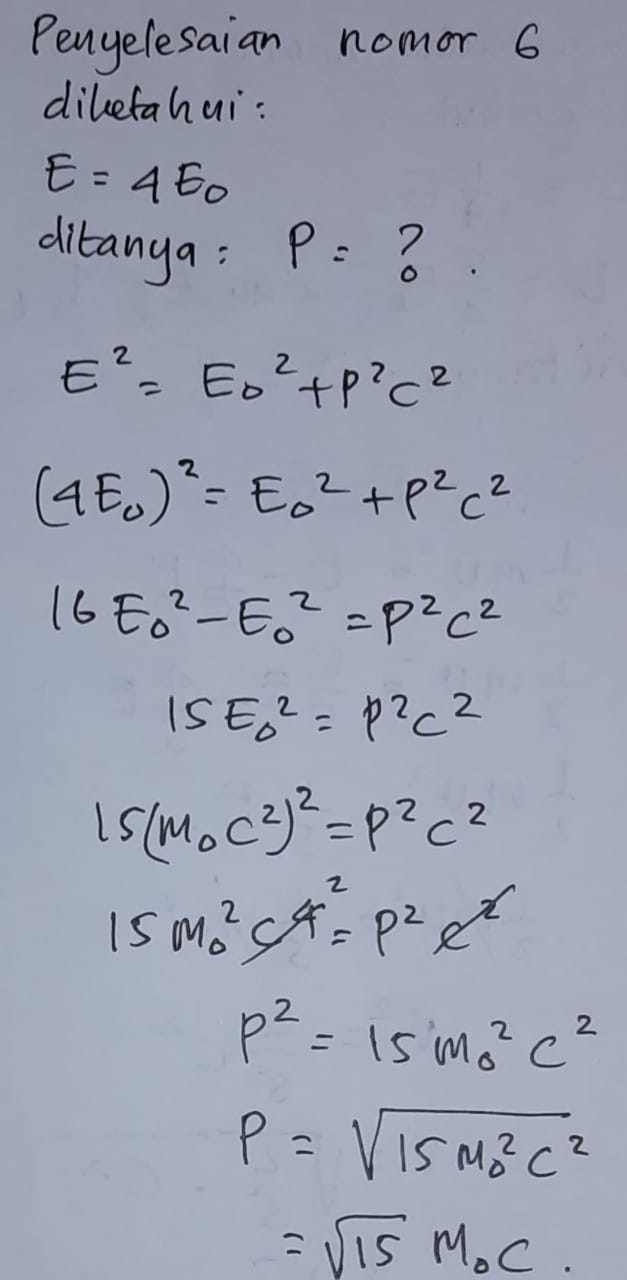 Penyelesaian nomor 6
diketahui:
E = 4 E₀
ditanya: P = ? .
E² = E₀² + P²C²
(4E₀)² = E₀² + P²C²
16 E₀² - E₀² = P²C²
15 E₀² = P²C²
15(M₀C²)² = P²C²
15 M₀² C⁴ ² = P² C²
P² = 15 M₀² C²
P = √15 M₀² C²
= √15 M₀C.